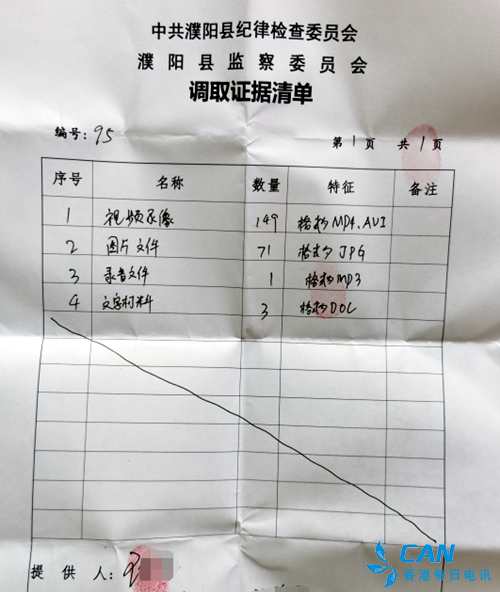 中共濮阳县纪律检查委员会
濮阳县监察委员会
调取证据清单
编号：95 第1页 共1页
序号 名称 数量 特征 备注
1 视频录像 149 格式MP4.AVI
2 图片文件 71 格式JPG
3 录音文件 1 格式MP3
4 文字材料 3 格式DOC
提供人：
CAN
香港每日电讯